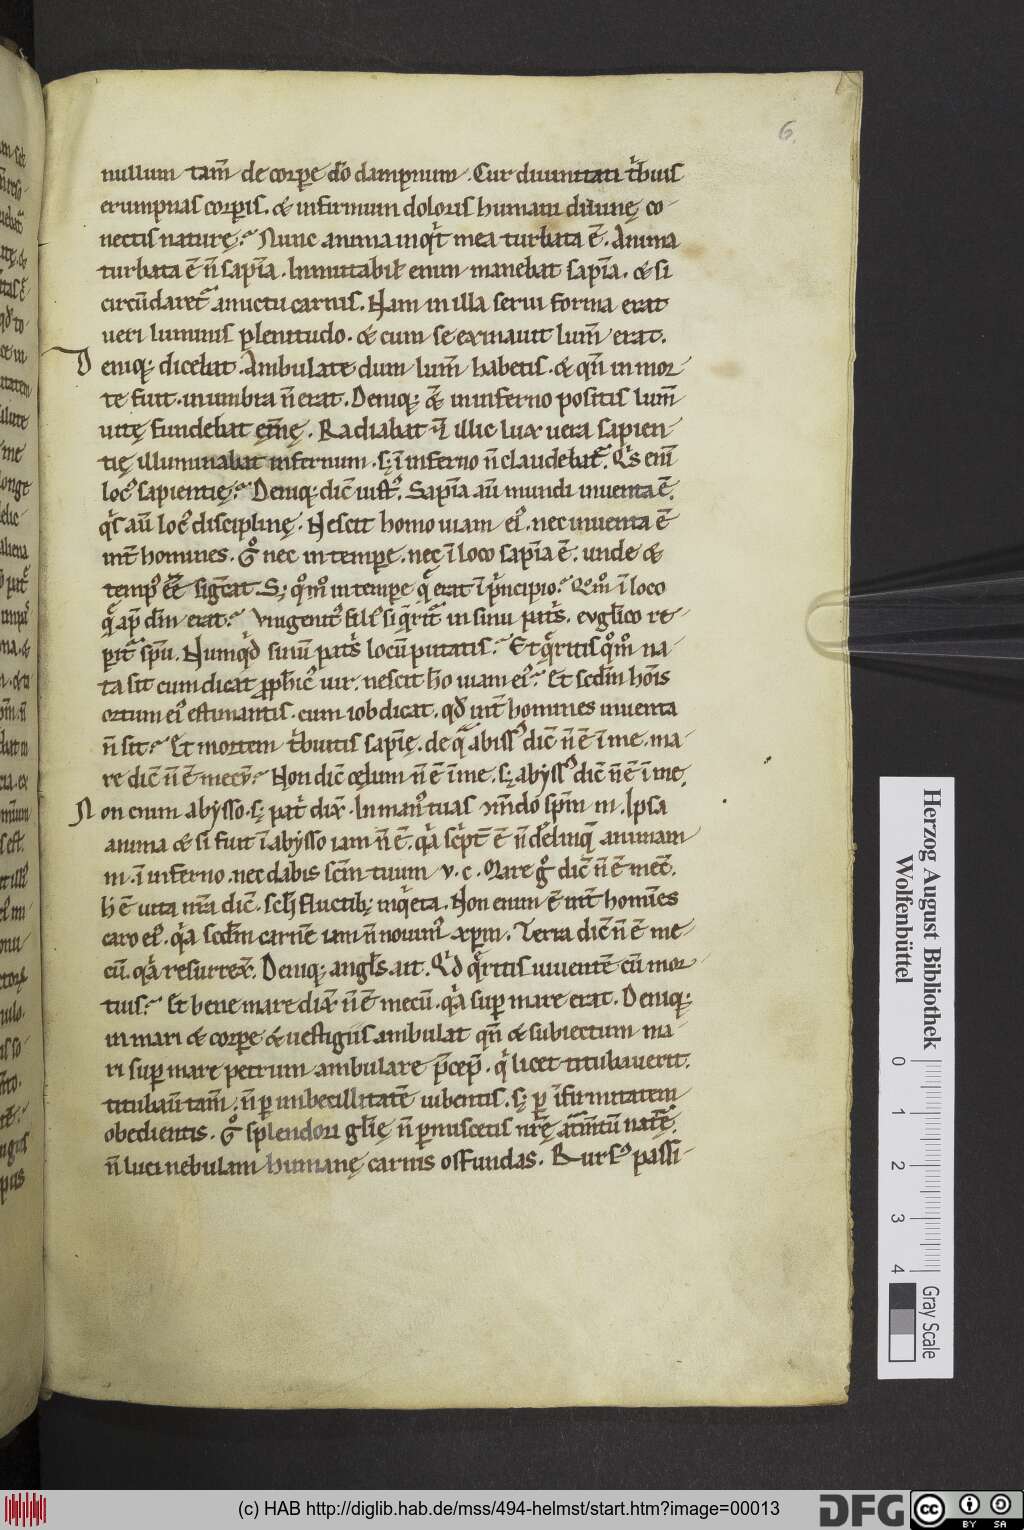 6
nullum tam̅ de corꝑe dn̅o dampnum. Cur diuinitati tͥbuis
erumpnas corꝑis. & infirmum doloris humani diuinę co-
nectis naturę? Nunc anima inqͥt mea turbata ē. Anima
turbata ē n̅ sapīa. Inmutabil̕ enim manebat sapīa. & si
circūdaret᷑ amictu carnis. Nam in illa serui forma erat
ueri luminis plenitudo. & cum se exinaiut lum̅ erat.
Deniqꝫ dicebat. Ambulate dum lum̅ habetis. & qn̅ in mor
te fuit. in umbra n̅ erat. Deniqꝫ & in inferno positis lum̅
uitę fundebat et̅nę. Radiabat illic lux uera sapien
tię illuminabat infernum. sꝫ ī inferno n̅ claudebat᷑. Qͥs enī
locꝰ sapientię? Deniqꝫ dic̅ iustꝰ. Sapīa au̅ mundi inuenta ē.
qͥs au̅ locꝰ disciplinę. Nescit homo uiam eiꝰ. nec inuenta ē
int̅ homines. Gͦ nec in temꝑe. nec ī loco sapīa ē. unde &
tempꝰ ee̅ sigͥt. Sꝫ qͦmͦ in temꝑe qͣ erat ī pͥncipio? Qͦmͦ ī loco
qͣ ap̅ dm̅ erat? Vnigenitꝰ filiꝰ si qͥrit᷑ in sinu patͥs. euglico re
ꝑit᷑ sp̅u. Numqͥd sinū patͥs locū putatis? Et qͥritis qͦmͦ na
ta sit cum dicat ꝓph̅ic̅ uir. nescit hͦo uiam eiꝰ? Et scdm̅ hoīs
ortum eiꝰ estimantis. cum iob dicat. qd̅ int̅ homines inuenta
n̅ sit? Et mortem tͥbuitis sapīę. de qͣ abissꝰ dic̅ n̅ ē ī me. ma
re dic̅ n̅ ē mecū? Non dic̅ cęlum n̅ ē ī me. sꝫ abyssꝰ dic̅ n̅ ē ī me.
Non enim abysso. sꝫ patͥ dix̅. In manꝰ tuas c̅mdo sp̅m m̅. Ipsa
anima & si fuit ī abysso iam n̅ ē. qͣ scͥpt̅ ē n̅ delinqͣ animam
m̅. ī inferno. nec dabis scm̅ tuum v. c. Mare gͦ dic̅ n̅ ē mec̅.
h̅ ē uita nr̅a dic̅. sclī fluctibꝫ inqͥeta. Non enim ē int̅ homīes
caro eiꝰ. qͣ scdm̅ carnē iam n̅ nouimꝰ xp̅m. Terra dic̅ n̅ ē me
cū. qͣ resurrex̅. Deniqꝫ angl̅s ait. Qͥd qͥritis uiuentē cū mor
tuis? Et bene mare dix̅ n̅ ē mecū. qͣ suꝑ mare erat. Deniqꝫ
in mari & corꝑe & uestigiis ambulat qn̅ & subiectum ma-
ri suꝑ mare petrum ambulare p̅cep̅. qͥ licet titubauerit.
titubau̅ tam̅. n̅ ꝑ imbecillitatē iubentis. sꝫ ꝑ īfirmitatem
obedientis. Gͦ splendori gl̅ię n̅ ꝑmiscetis nr̅ę at̅mtū nat̅ę.
n̅ luci nebulam humanę carnis offundas. Rursꝰ passi-
Herzog August Bibliothek
Wolfenbüttel
0 1 2 3 4
Gray Scale
(c) HAB http://diglib.hab.de/mss/494-helmst/start.htm?image=00013
DFG
cc BY SA